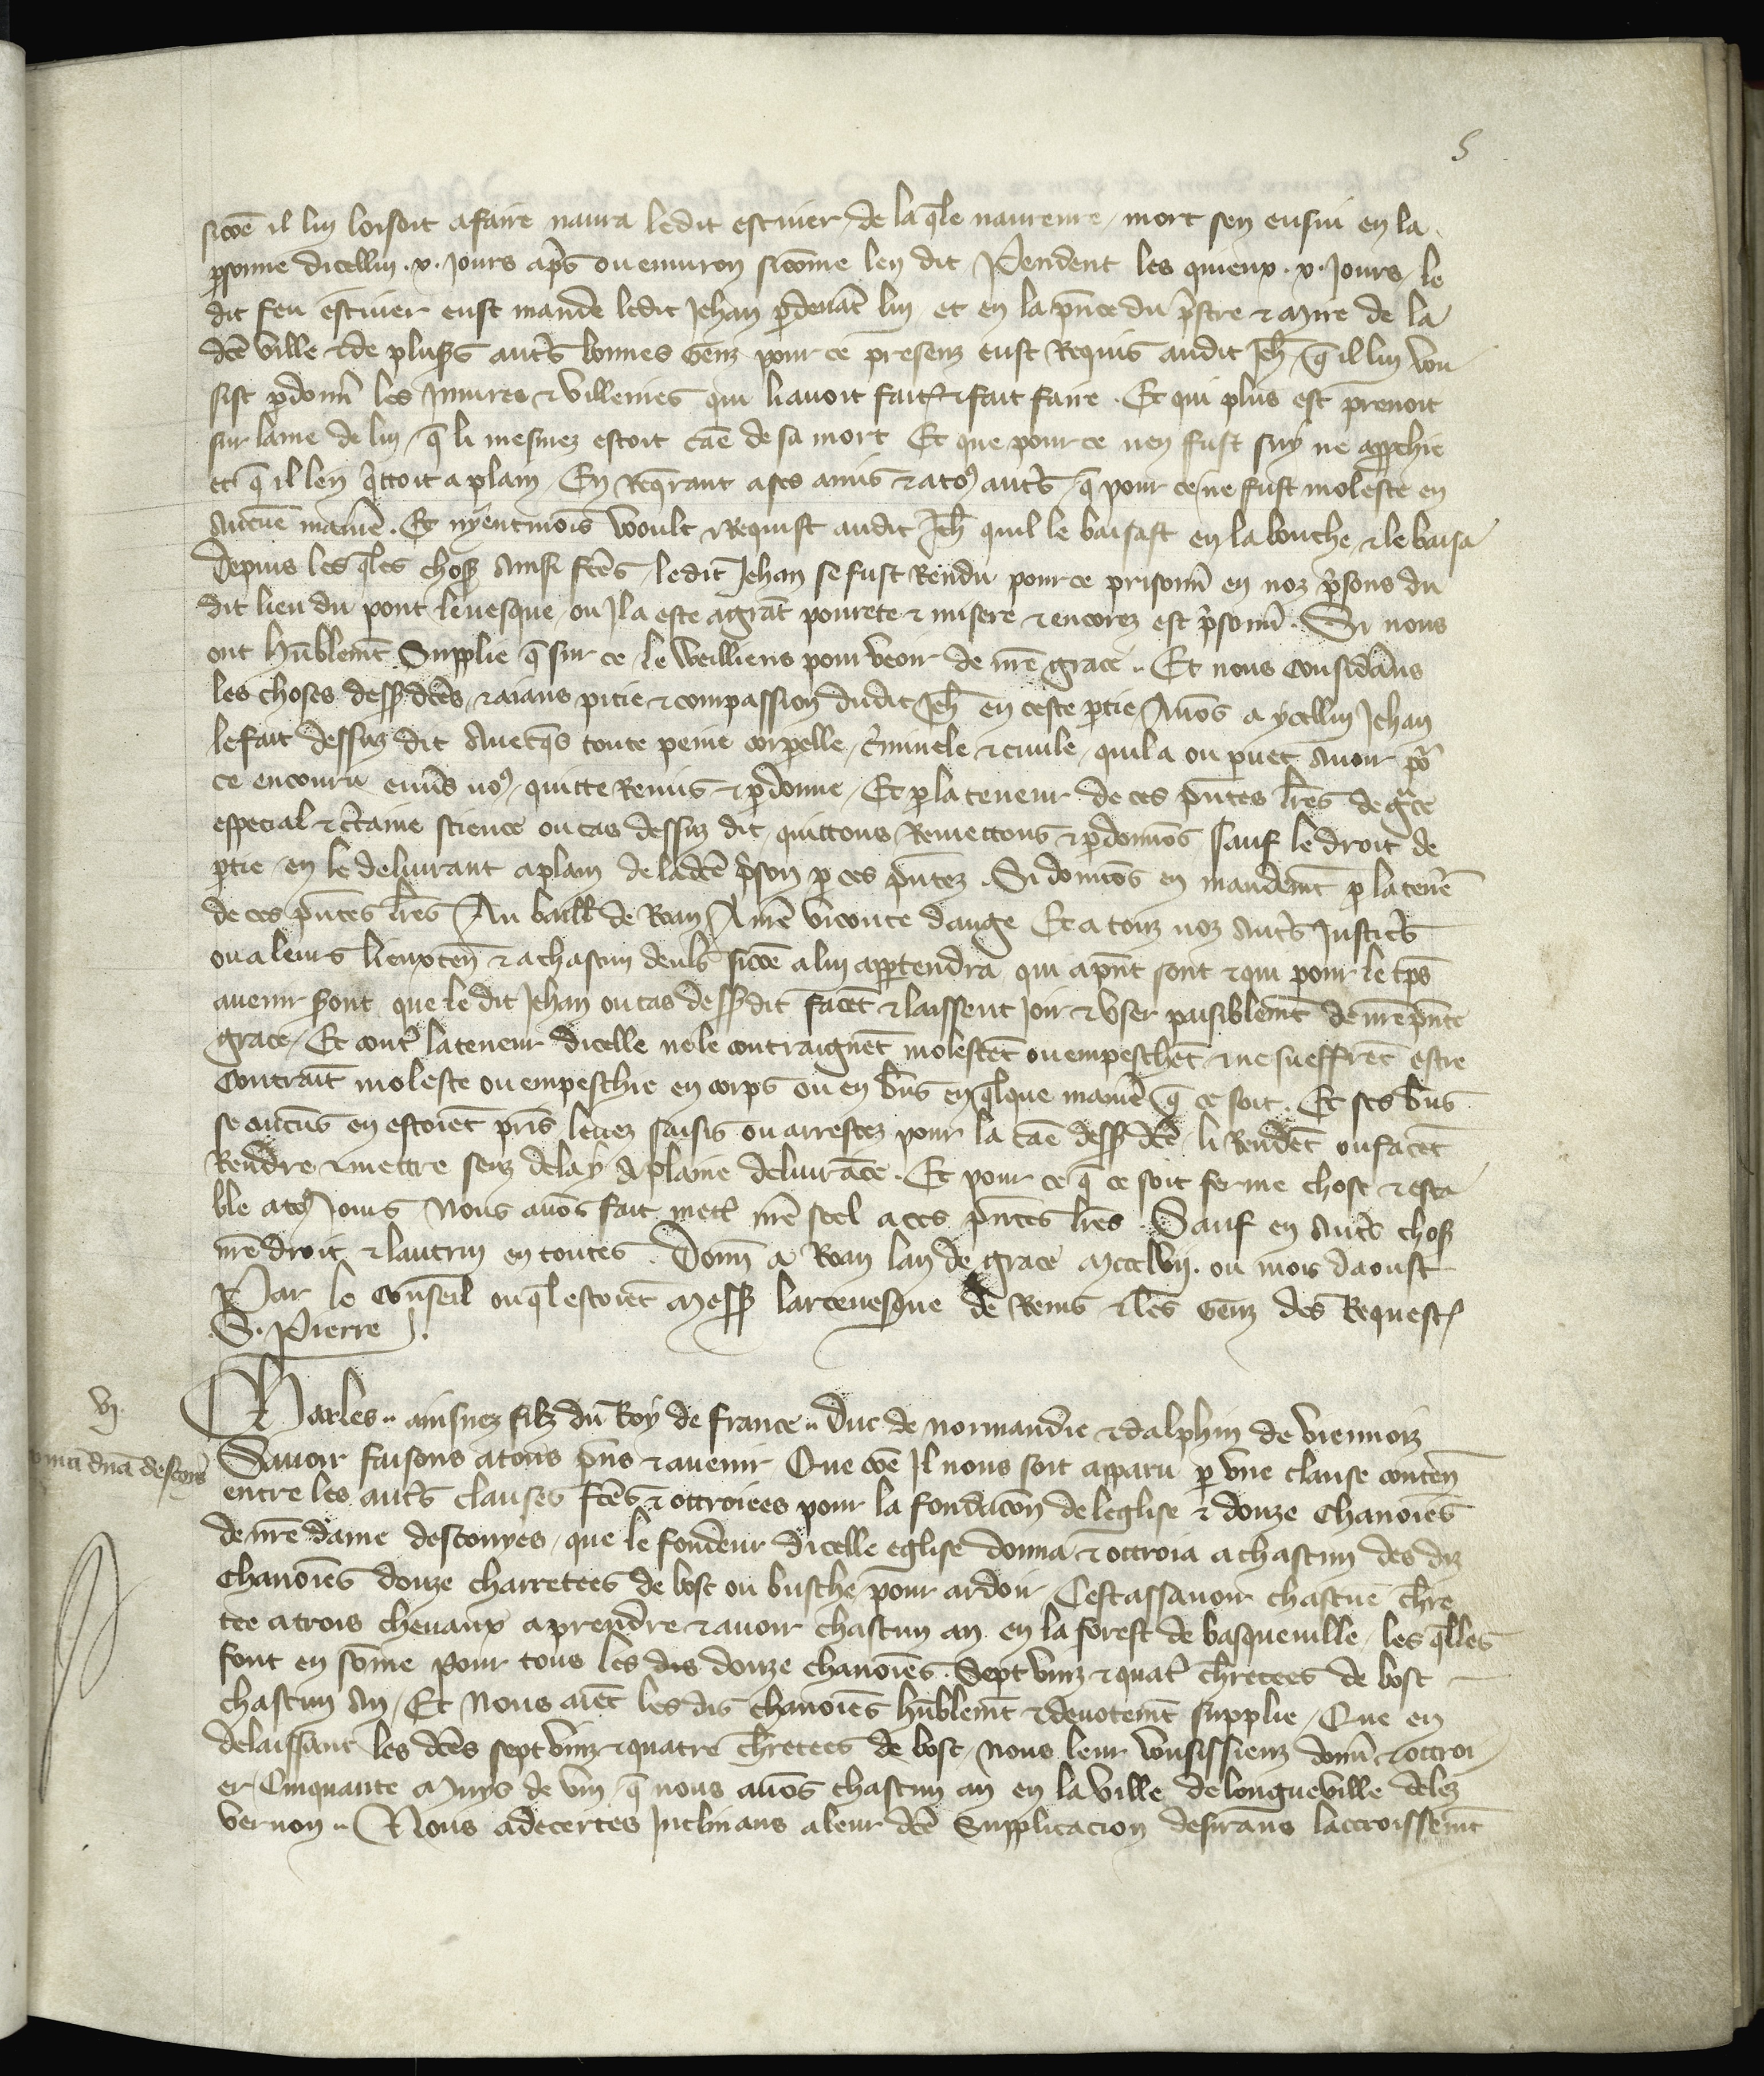 5
sicōe il lui loisoit a faire navra ledit escuier de la q̄le navreure mort sen ensui en la
ꝑsonne dicellui .x. jours ap̄s ou environ sicōme len dit Pendent les quieux .x. jours le
dit feu escuier eust mande ledit Jehan ꝑdevāt lui et en la p̄nce du p̄stre & mire de la
dc̄e ville & de plus͛s aut͛s bonnes genz pour ce presenz eust requis audit Jeh̄ q̄ il lui vou
sist ꝑdonn̄ les Injures & villenies qui li avoit fait & fait faire . Et qui plus est prenoit
sur lame de lui q̄ li mesmez estoit cāe de sa mort Et que pour ce nen fust suy ne approchie
et q̄ il len q̄ttoit a plain En req̄rant a ses amis & a toꝰ aut͛s q̄ pour ce ne fust moleste en
aucūe manie͛ . Et nyentmois voult & requist audit Jeh̄ quil le baisast en la bouche & le baisa
Depuis les q̄les chos͛ ainsi fc̄es ledit Jehan se fust rendu pour ce prisonn̄ en noz p̄sons du
dit lieu du pont levesque ou Jl a este a grāt povrete & misere & encorez est p̄sonn̄ . Si nous
ont hūblemēt supplie q̄ sur ce le weilliens pourveoir de nr̄e grace .. Et nous consid͛ans
les choses dess͛ dc̄es & aians pitie & compassion dudit Jeh̄ en ceste ꝑtie Avōs a ycellui Jehan
le fait dessuz dit avecq̄s toute peine corporelle c͛minele & civile quil a ou puet avoir po͛
ce encouru env͛s noꝰ quitte remis & ꝑdonne Et ꝑ la teneur de ces p̄ntes lr̄es de gr͛ce
especial & c͛taine science ou cas dessuz dit quittons Remettons & ꝑdonnōs sauf le droit de
ꝑtie en le delivrant a plain de la dc̄e p̄son ꝑ ces p̄ntez . Si donnōs en mandemēt ꝑ la ten͛e
de ces p̄ntes lr̄es Au baill̄ de Roan A nr̄e viconte dauge Et a touz noz aut͛s Justic͛s
ou a leurs lieuxten̄ & a chascun deuls sicōe a lui appartendra qui a p̄nt sont & qui pour le tp̄s
avenir s͛ont que le dit Jehan ou cas dess͛ dit facēt & laissent joir & user paisiblemēt de nr̄e p̄nte
grace Et cont͛ la teneur dicelle ne le contraignēt molestēt ou empeschēt & ne sueffrēt estre
contrait moleste ou empeschie en corps ou en bn̄s en q̄lque manie͛ q̄ ce soit . Et ses bn̄s
se aucūs en estoiēt pris levez saisis ou arrestez pour la cāe dess͛ dc̄e li rendēt ou facēt
Rendre & mettre senz delay a plaine delivrāce . Et pour ce q̄ ce soit ferme chose & esta
ble a toꝰ jours Nous avōs fait mett͛ nr̄e seel a ces p̄ntes lr̄es . Sauf en aut͛s chos͛
nr̄e droit & lautrui en toutes . Donn̄ a Roan lan de grace mccclvij. ou mois daoust
Par le conseil ouq̄l estoiēt mess͛ larcevesque de Reins & les genz des Request͛
.S. Pierre .
vj.
Charles .. ainsnez filz du Roy de france .. Duc de normandie & dalphin de viennoiz
Savoir faisons a tous p̄ns & avenir Que cōe Il nous soit apparu ꝑ une clause conten̄
dn̄a descoys
entre les aut͛s clauses fc̄es & octroiees pour la fondacōn de leglise & douze Chanoīes
de nr̄e dame descouyes que le fondeur dicelle eglise donna & octroia a chascun des diz
Chanoīes douze charretees de bosc ou busche pour ardoir Cest assavoir chascūe ch͛re
tee a trois chevaux a prendre & avoir chascun an en la forest de basqueville les q̄lles
font en sōme pour tous les dis douze chanoīes . Sept vinz & quat͛ ch͛retees de bosc
chascun an Et Nous aiēt les dis chanoīes hūblemēt & devotemēt supplie Que en
delaissant les dc̄es sept vinz & quatre ch͛retees de bosc nous leur voussissienz donn̄ & octroi
er Cinquante muys de vin q̄ nous avōs chascun an en la ville de longueville delez
vernon .. Nous adecertes Inclinans a leur dc̄e supplicacion desirans laccroissemēt